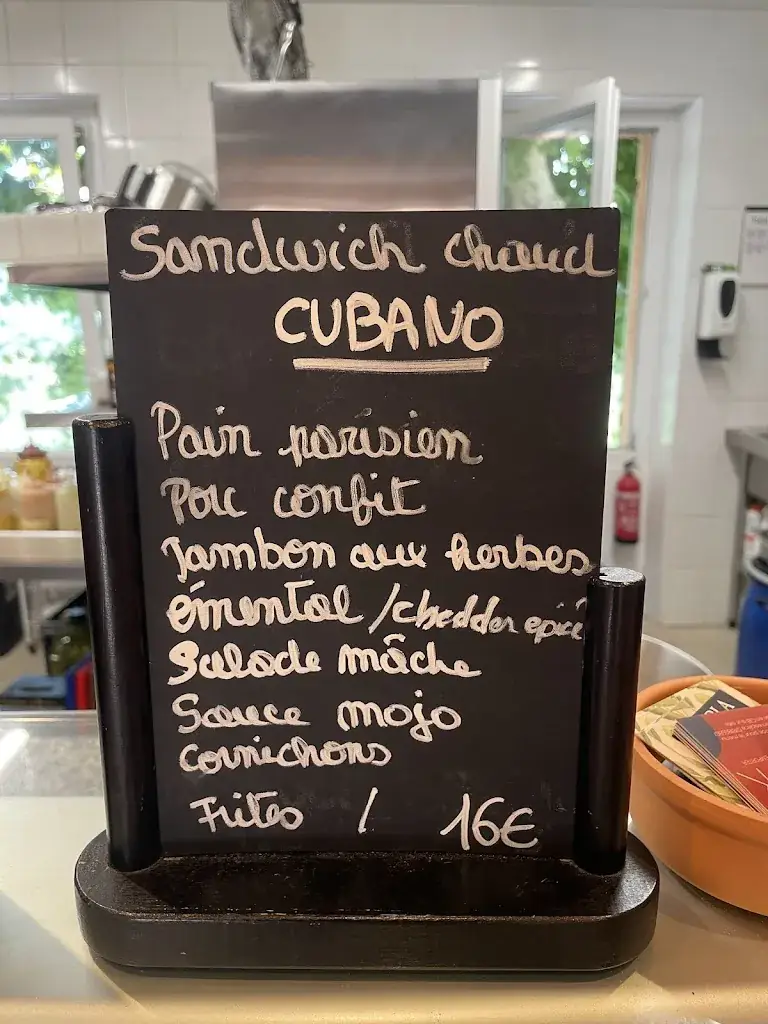 Sandwich chaud
CUBANO
Pain parisien
Porc confit
Jambon aux herbes
émental / cheddar épicé
Salade mâche
Sauce mojo
Cornichons
Frites / 16€